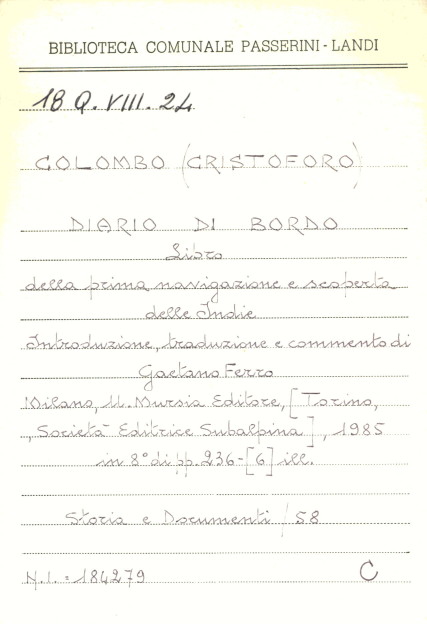 BIBLIOTECA COMUNALE PASSERINI-LANDI
18 Q. VIII. 24
COLOMBO (CRISTOFORO)
DIARIO DI BORDO
Libro
della prima navigazione e scoperta
delle Indie
Introduzione, traduzione e commento di
Gaetano Ferro
Milano, U. Mursia Editore, [Torino,
, Società Editrice Subalpina], 1985
in 8° di pp. 236-[6] ill.
Storia e Documenti / 58
N.I. = 184279 C